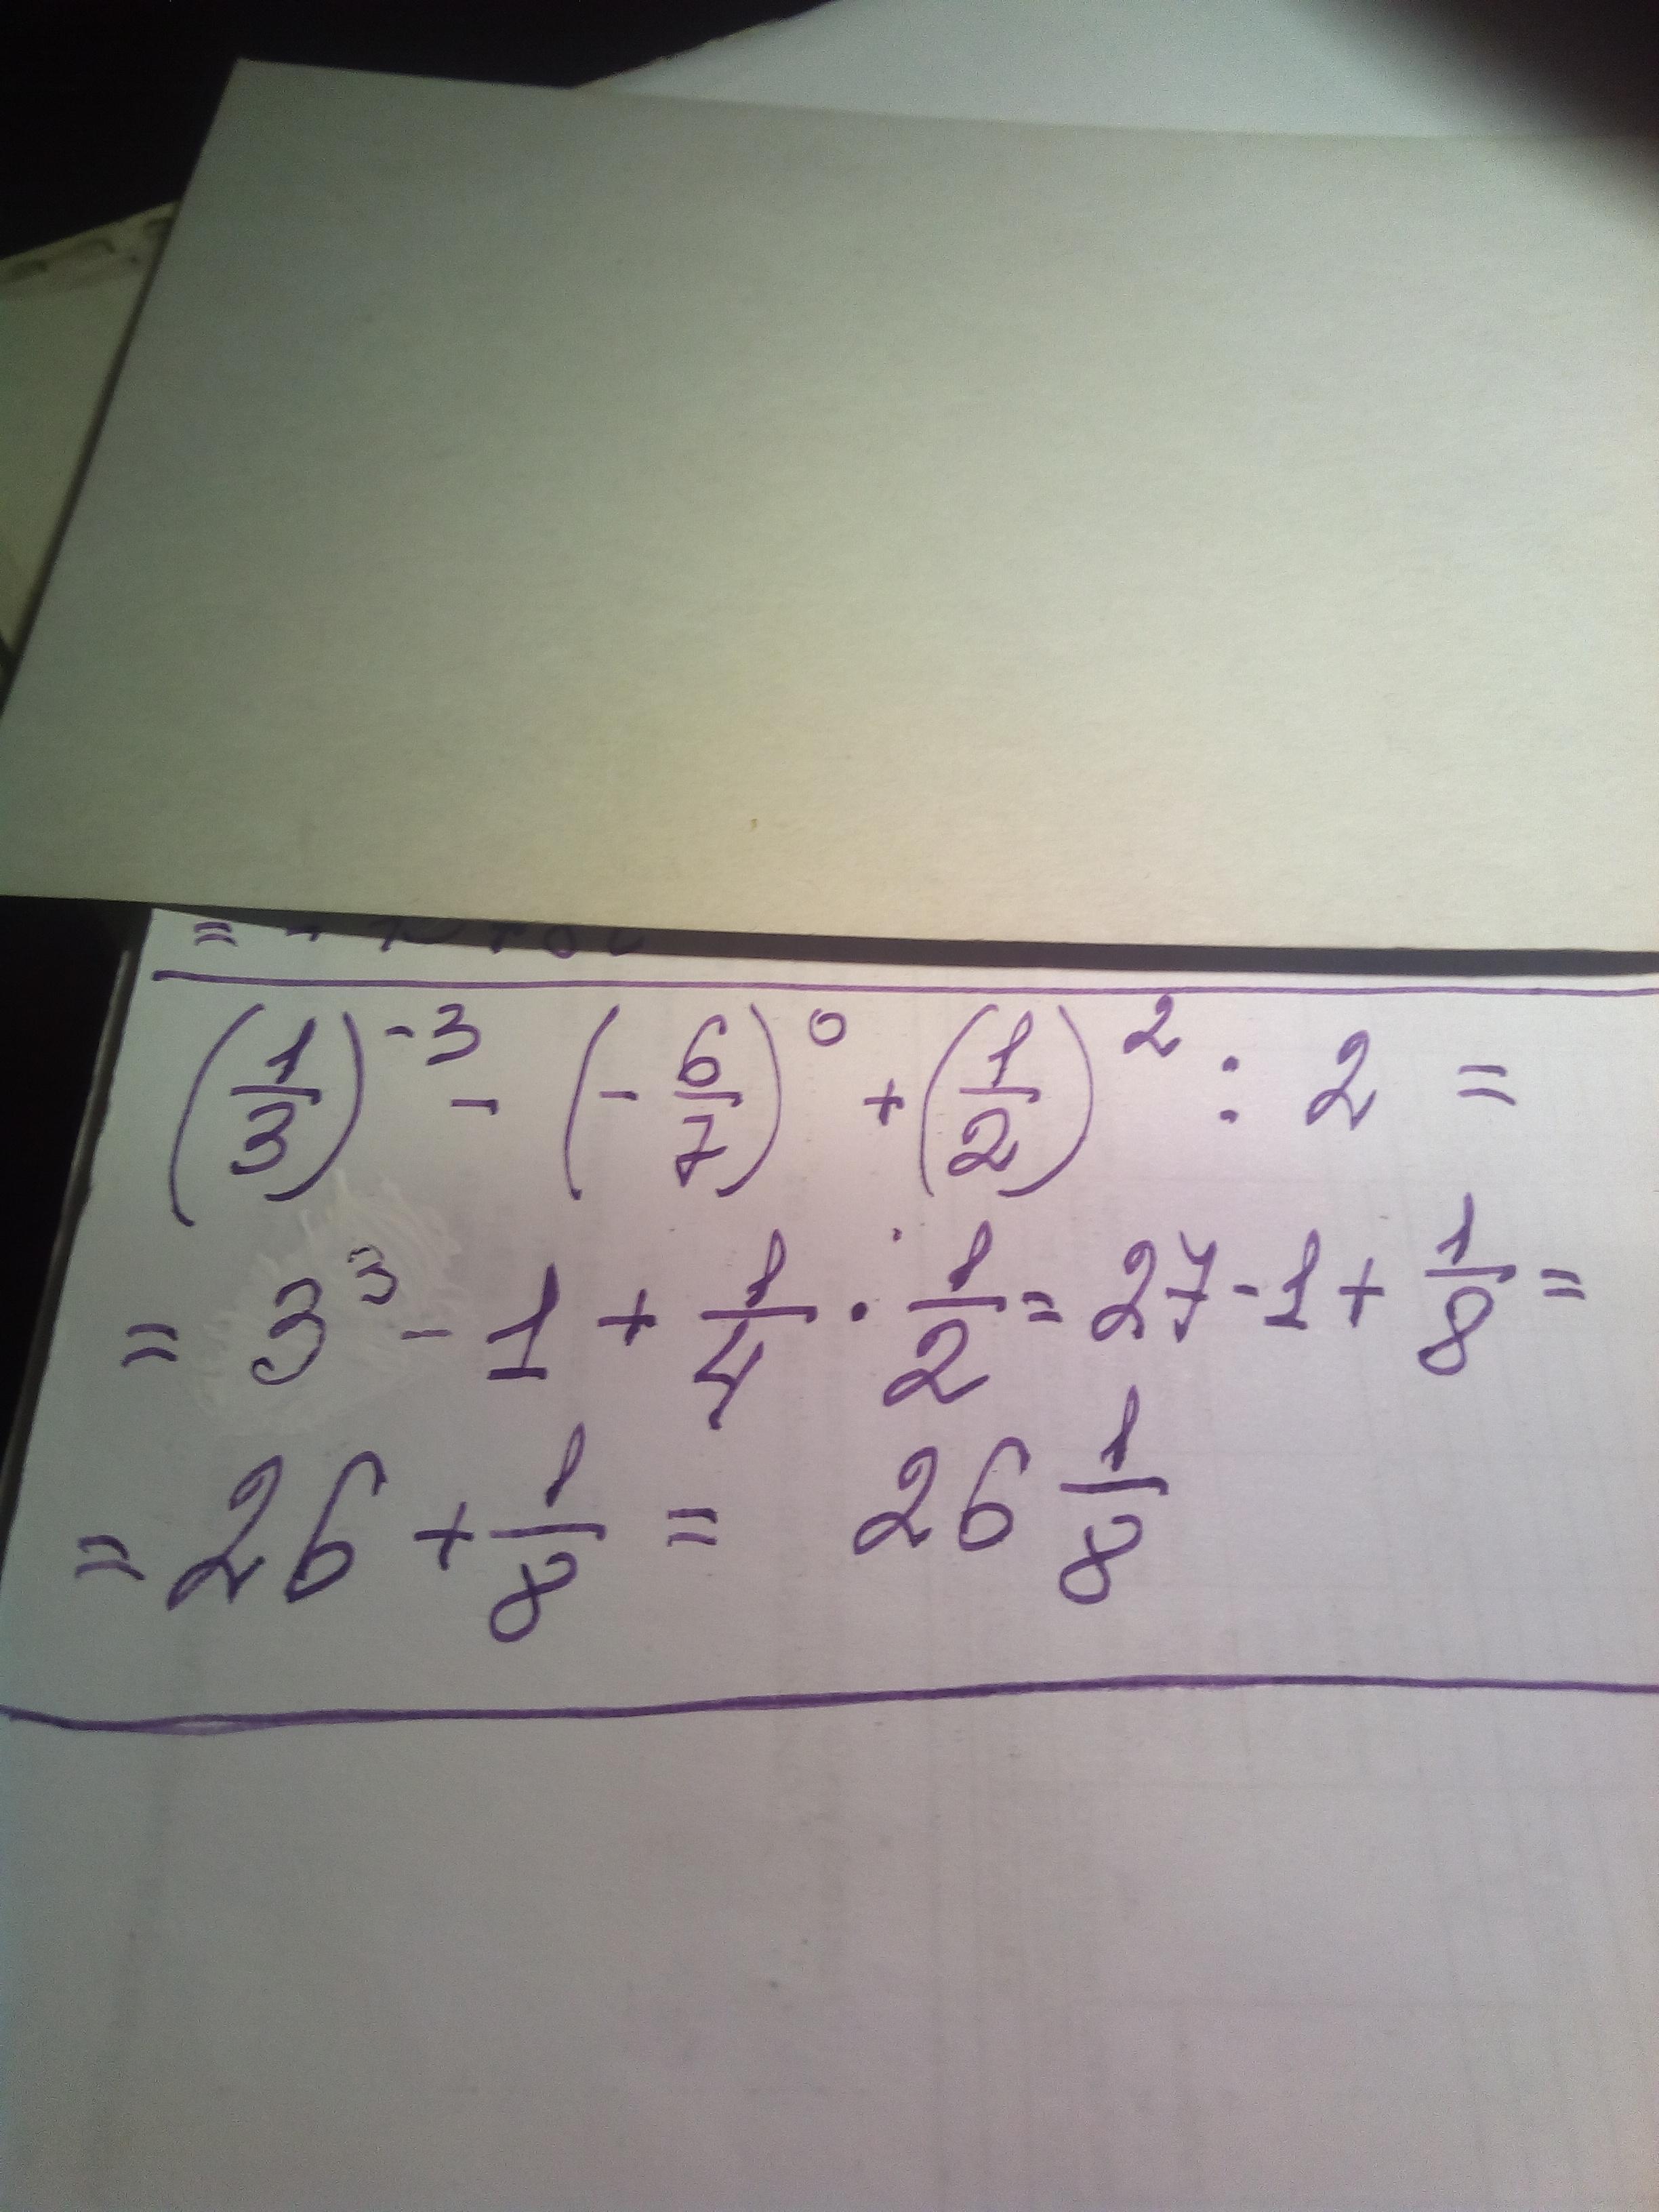 (1/3)^-3 - (-6/7)^0 + (1/2)^2 : 2 =
= 3^3 - 1 + 1/4 · 1/2 = 27 - 1 + 1/8 =
= 26 + 1/8 = 26 1/8